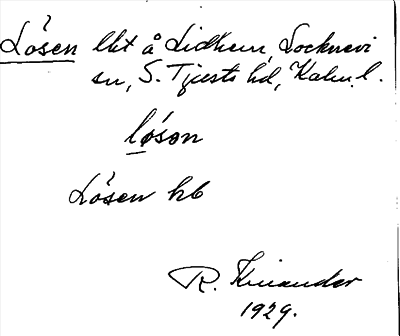 Lösen lht å Lidhem, Locknevi
sn, S. Tjusts hd, Kalm. l.
lǿsən
Lösen hb
R. Kinander
1929.